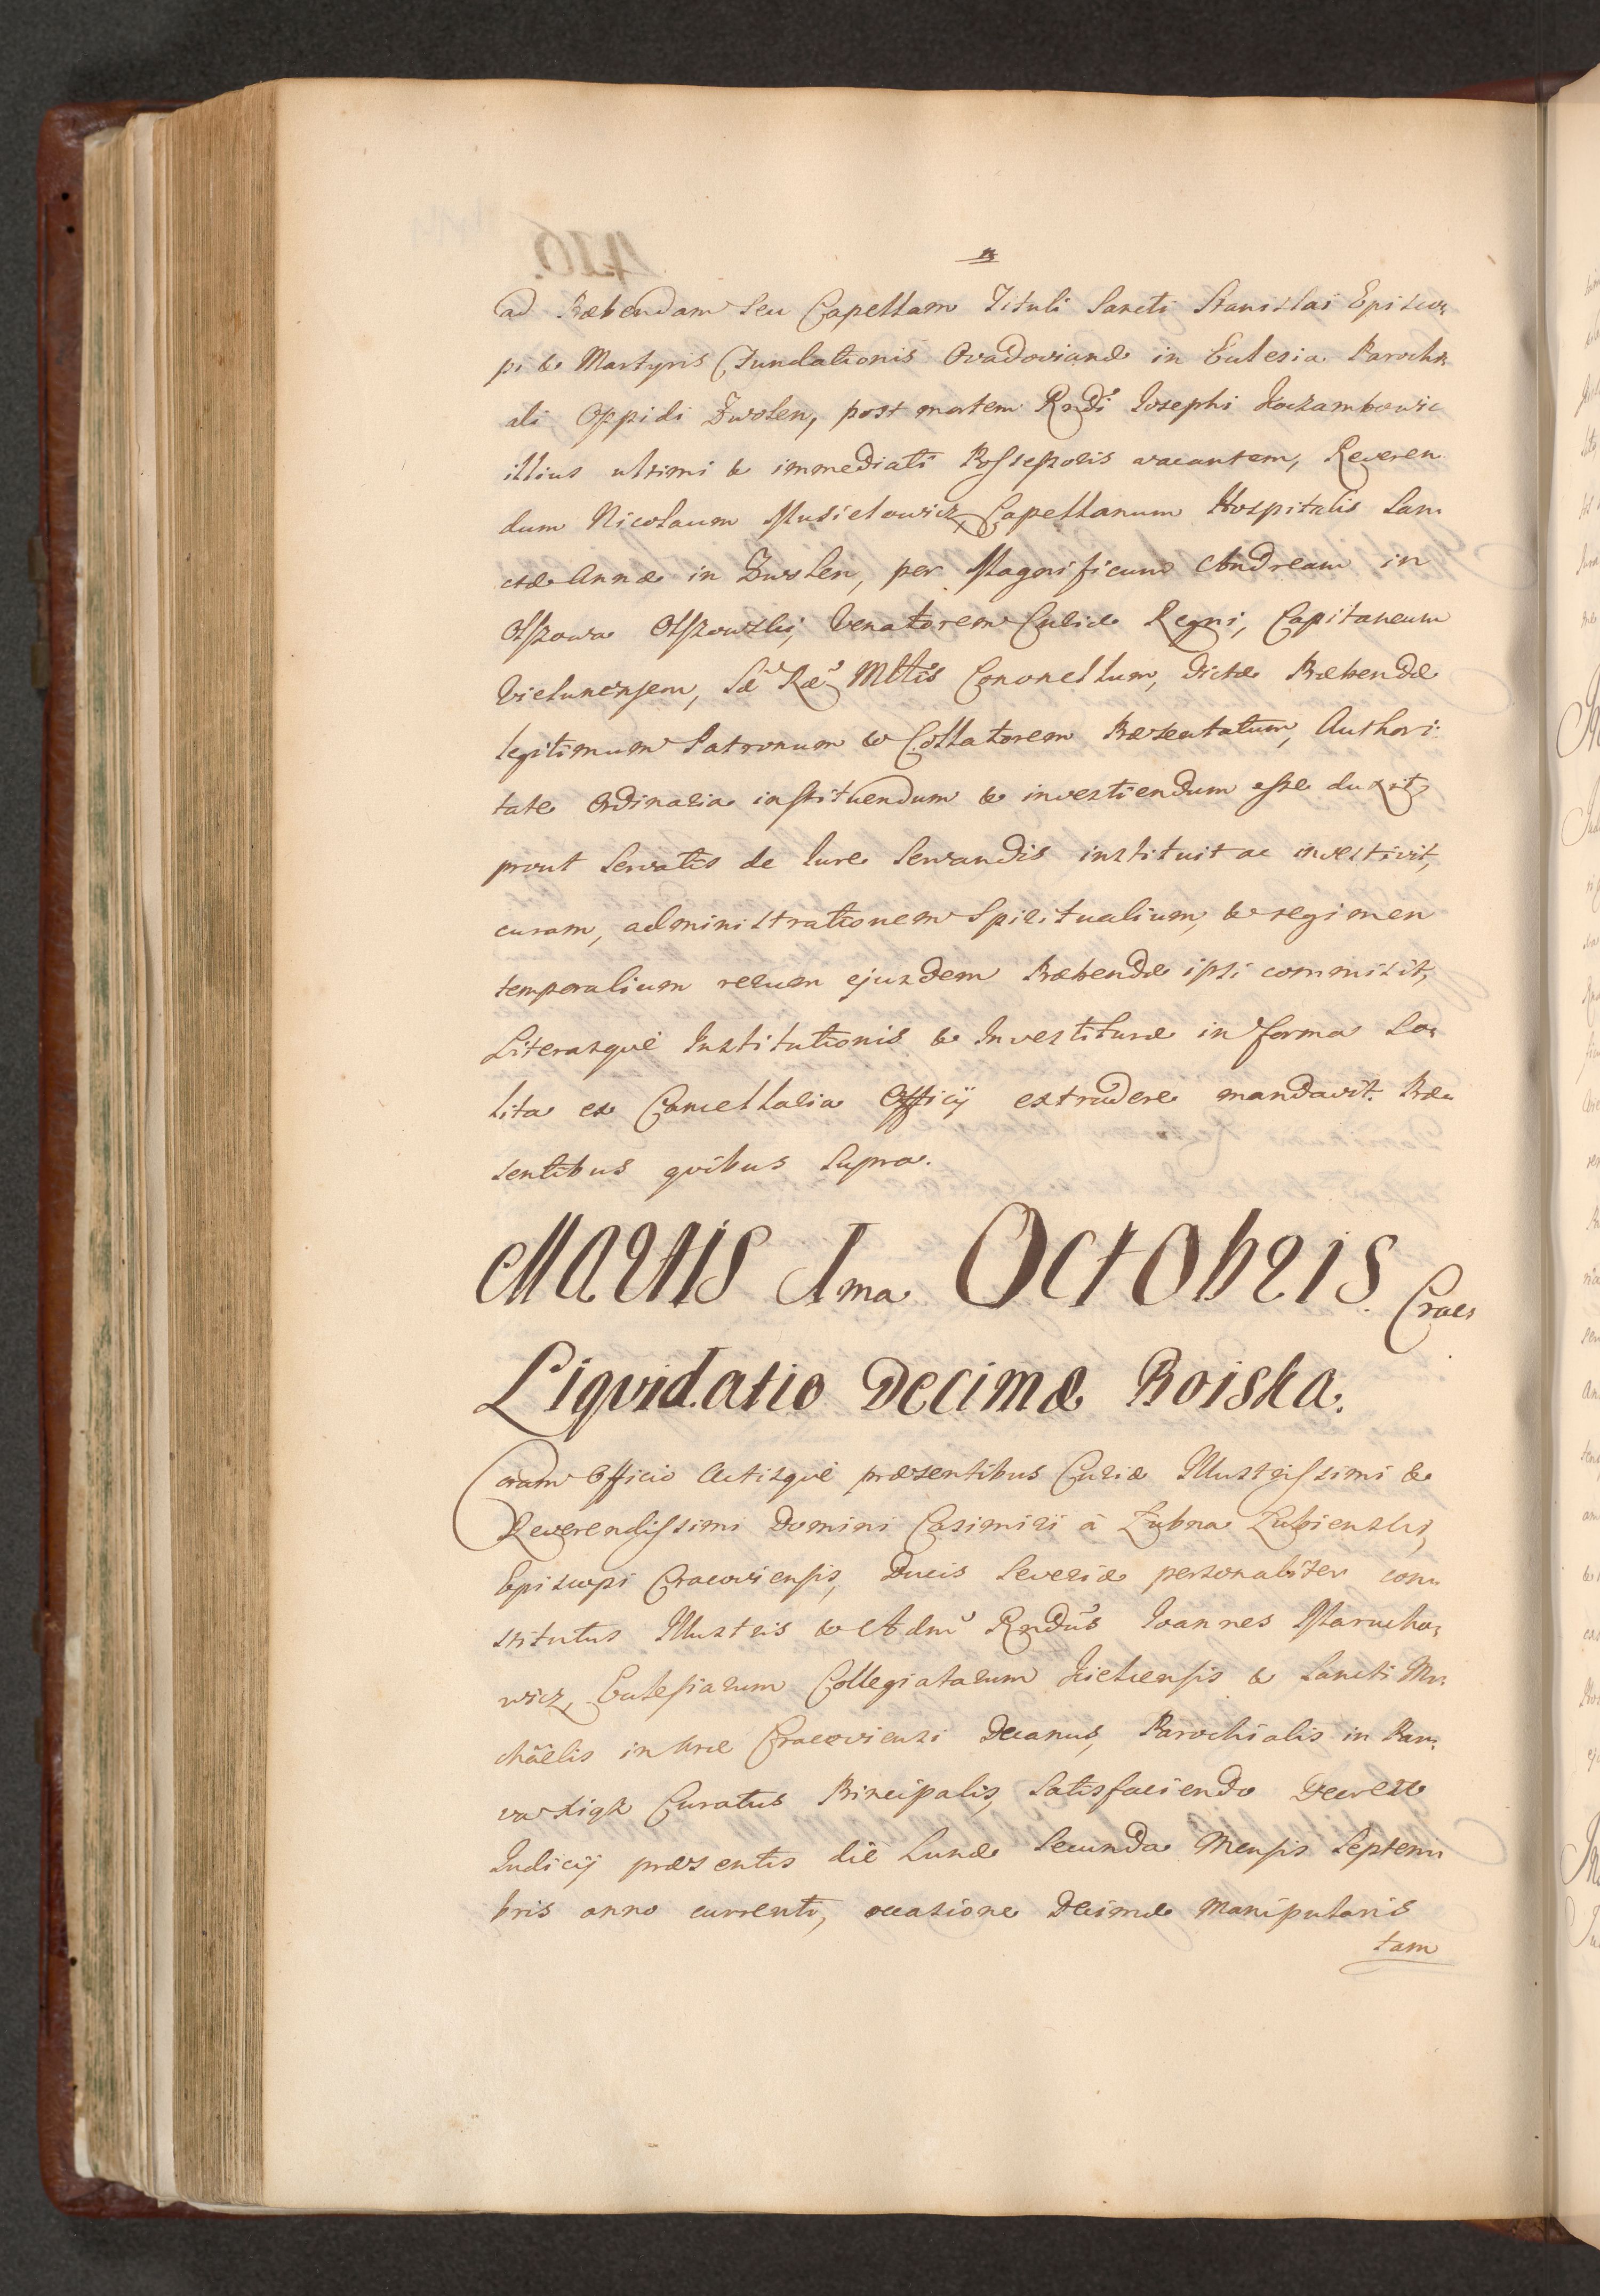 ad Præbendam seu Capellam Tituli Sancti Stanislai Episco:
pi & Martyris Fundationis Ovadovianæ in Eclesia Parochi:
ali Oppidi Zwolen, post mortem Rndi Iosephi
illius ultimi & immediati Possessoris vacantem, Reveren
dum Nicolaum Musielowicz Capellanum Hospitalis San:
ctæ Annæ in Zwolen, per Magnificum Andream in
Olszowa Olszowski, Venatorem Curiæ Regni, Capitaneum
Vielunensem, Sæ Ræ Mttis Coronellum, dictæ Præbendæ
legitimum Patronum & Collatorem Præsentatum, Authori:
tate Ordinaria instituendum & investiendum esse duxit,
prout servatis de Iure servandis instituit ac investivit,
curam, administrationem Spiritualium, & regimen
temporalium rerum ejusdem Præbendæ ipsi commisit,
Literasque Institutionis & Investituræ in forma so:
lita ex Cancellaria Officij extradere mandavit. Præ:
sentibus quibus supra.
Martis 1ma Octobris. Crac:
Liqvidatio Decimæ Boiska.
Coram Officio Actisque præsentibus Curiæ Illustrissimi &
Reverendissimi Domini Casimiri à Łubna Łubienski,
Episcopi Cracoviensis, Ducis Severiæ personaliter con:
stitutus Illustris & Admu Rndus Ioannes Marucho:
wicz, Eclesiarum Collegiatarum Kielcensis & Sancti Mi:
chäelis in Arce Cracoviensi Decanus, Parochialis in Par:
va Ligk Curatus Principalis, satisfaciendo Decreto
Iudicij præsentis die Lunæ secunda Mensis Septem:
bris anno currenti, occasione Decimæ Manipularis
tam